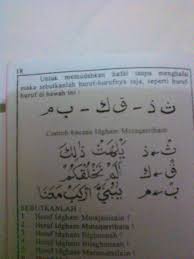 18
Untuk memudahkan hafal tanpa menghafal
maka sebutkanlah huruf-hurufnya saja, seperti huruf
huruf di bawah ini :
ث ذ - ق ك - ب م
Contoh bacaan Idgham Mutaqaribain
ث - ذ يَلْهَثْ ذٰلِكَ
ق - ك اَلَمْ نَخْلُقْكُمْ
ب - م يٰبُنَيَّ ارْكَبْ مَعَنَا
SEBUTKANLAH :
1. Huruf Idgham Mutajanisain ?
2. Huruf Idgham Mutaqaribain ?
Huruf Idgham
Huruf Idgham Bilaghunnah ?
Huruf Idgham